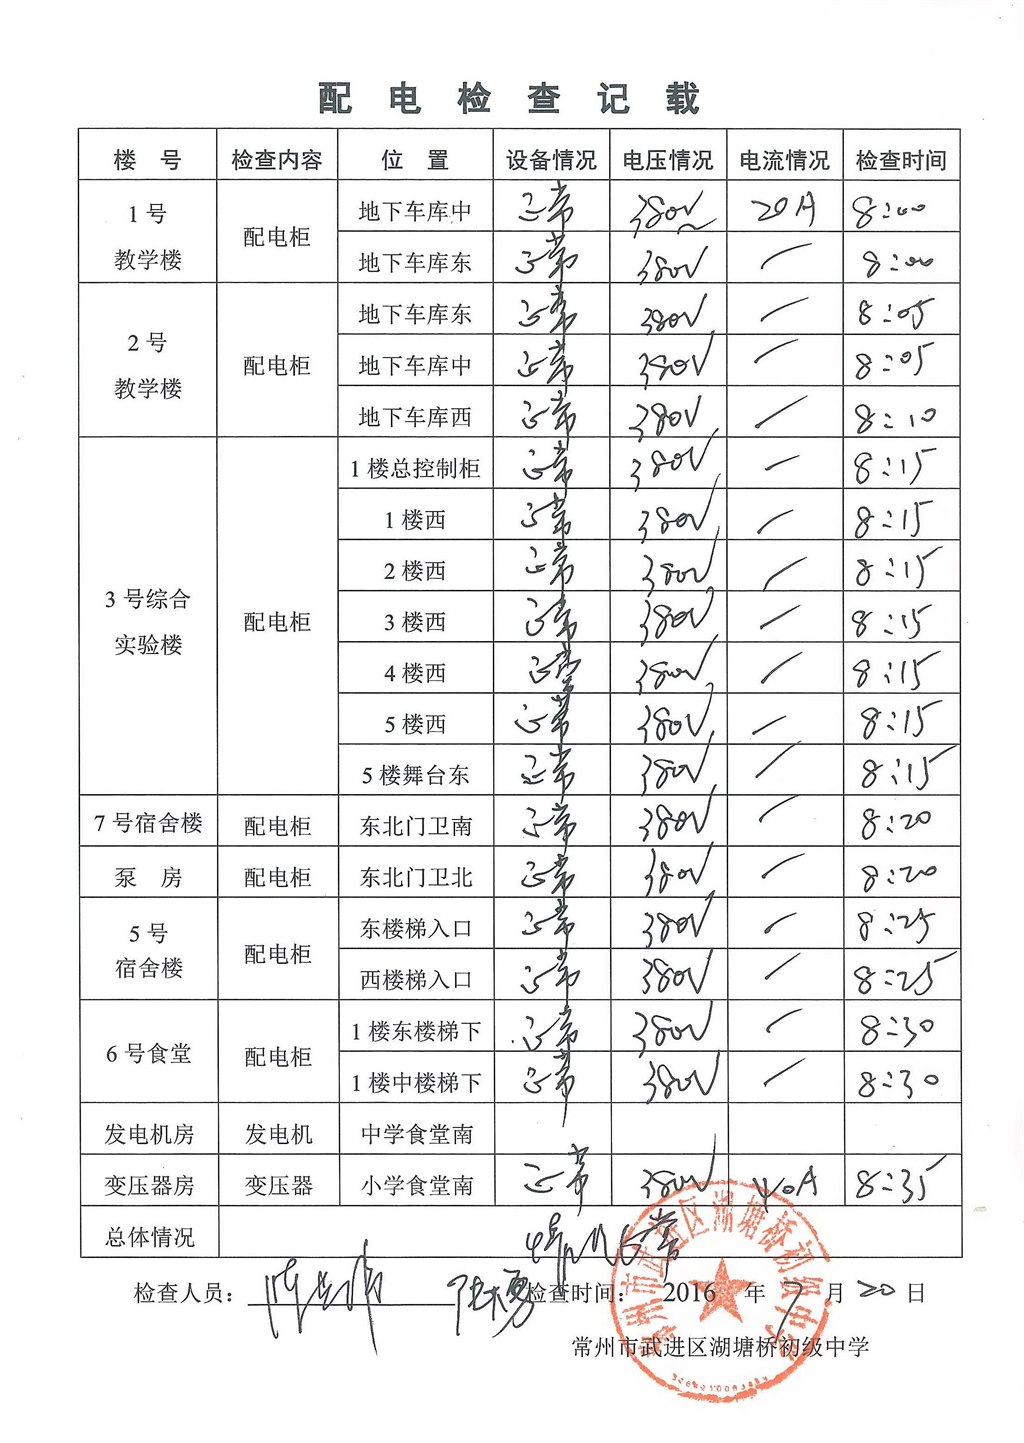 配电检查记载
楼 号 检查内容 位 置 设备情况 电压情况 电流情况 检查时间
1号教学楼 配电柜 地下车库中 正常 380V 20A 8:00
地下车库东 正常 380V / 8:00
2号教学楼 配电柜 地下车库东 正常 380V / 8:05
地下车库中 正常 380V / 8:05
地下车库西 正常 380V / 8:10
3号综合实验楼 配电柜 1楼总控制柜 正常 380V / 8:15
1楼西 正常 380V / 8:15
2楼西 正常 380V / 8:15
3楼西 正常 380V / 8:15
4楼西 正常 380V / 8:15
5楼西 正常 380V / 8:15
5楼舞台东 正常 380V / 8:15
7号宿舍楼 配电柜 东北门卫南 正常 380V / 8:20
泵 房 配电柜 东北门卫北 正常 380V / 8:20
5号宿舍楼 配电柜 东楼梯入口 正常 380V / 8:25
西楼梯入口 正常 380V / 8:25
6号食堂 配电柜 1楼东楼梯下 正常 380V / 8:30
1楼中楼梯下 正常 380V / 8:30
发电机房 发电机 中学食堂南
变压器房 变压器 小学食堂南 正常 380V 40A 8:35
总体情况
检查人员: 检查时间: 2016 年 7 月 20 日
常州市武进区湖塘桥初级中学
常州市武进区湖塘桥初级中学